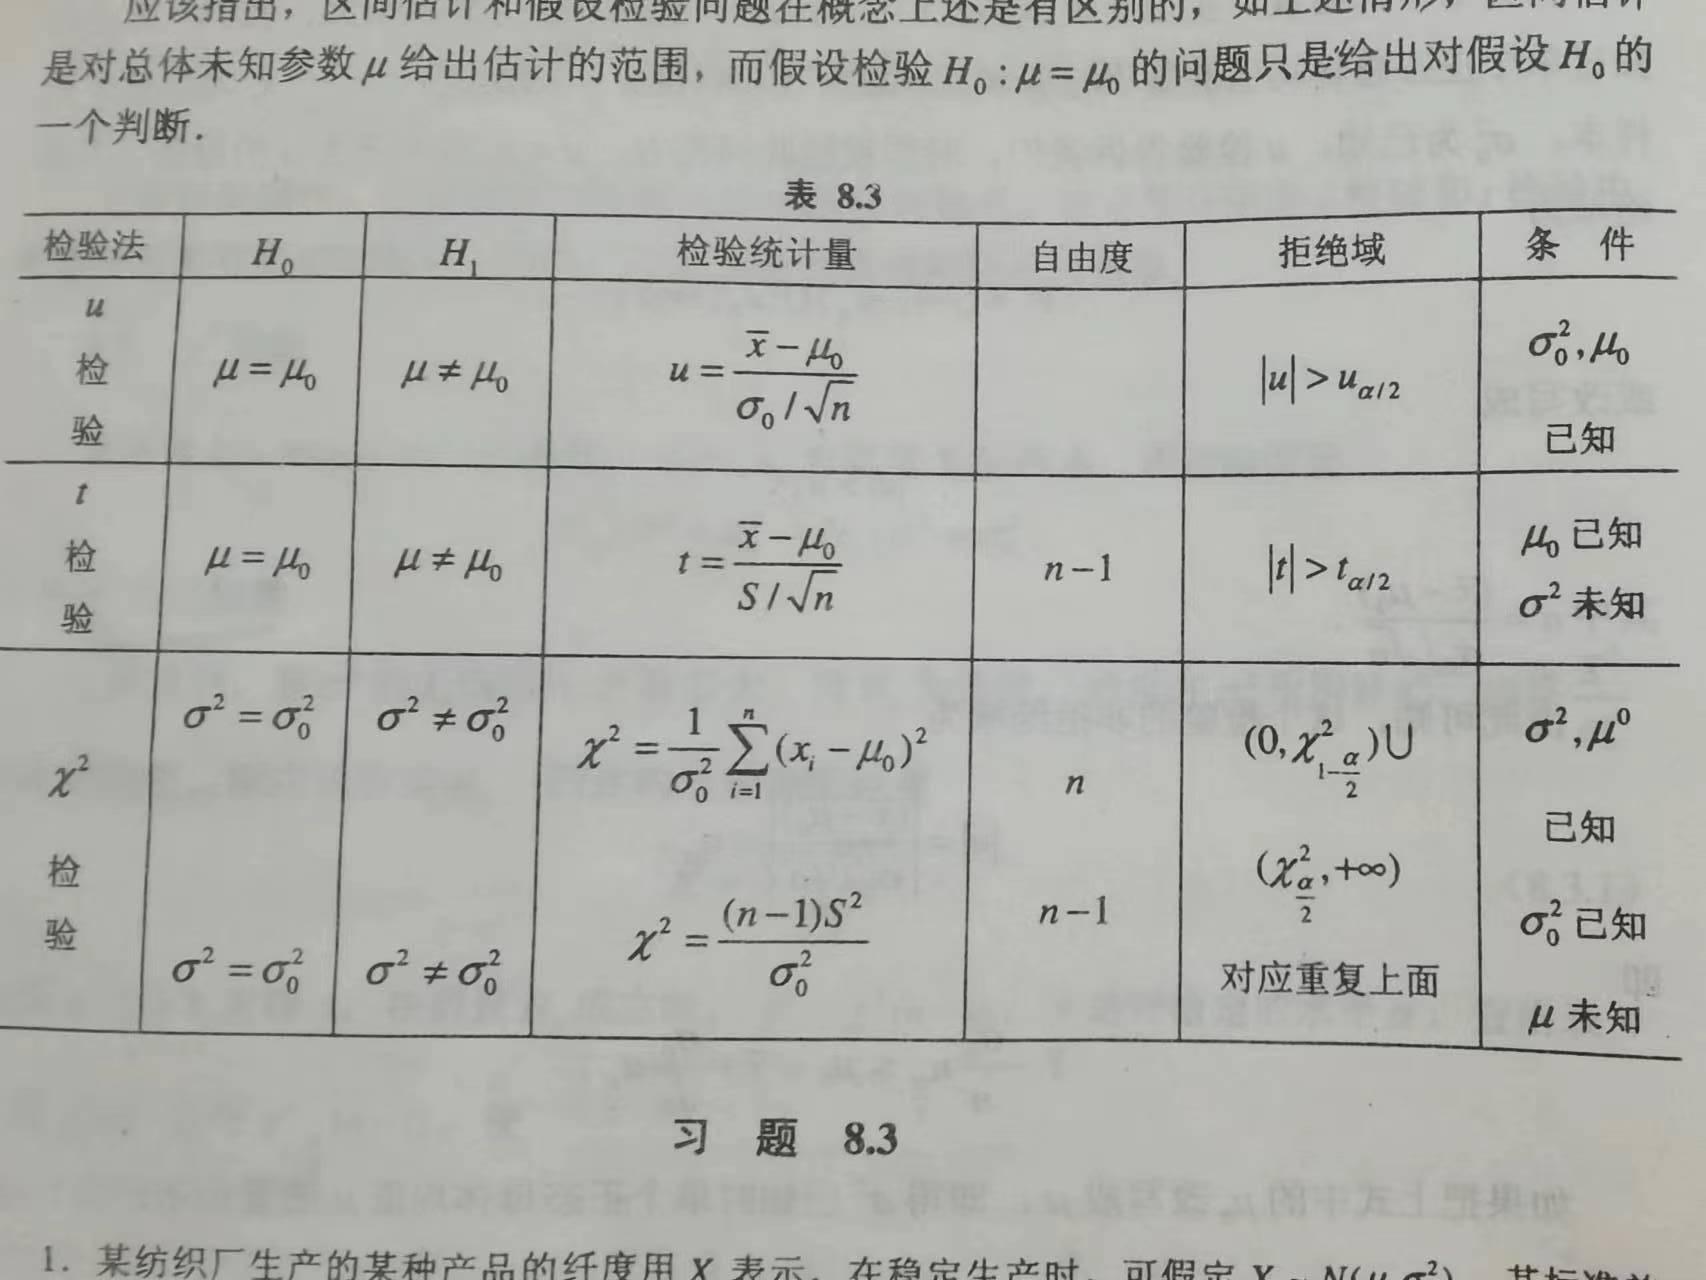 应该指出，区间估计和假设检验问题在概念上还是有区别的，如上述情形，区间估计
是对总体未知参数 μ 给出估计的范围，而假设检验 H₀ : μ = μ₀ 的问题只是给出对假设 H₀ 的
一个判断.
表 8.3
检验法 H₀ H₁ 检验统计量 自由度 拒绝域 条 件
u 检 验 μ = μ₀ μ ≠ μ₀ u = (x̄ − μ₀)/(σ₀ / √n) |u| > u_{α/2} σ₀², μ₀ 已知
t 检 验 μ = μ₀ μ ≠ μ₀ t = (x̄ − μ₀)/(S / √n) n − 1 |t| > t_{α/2} μ₀ 已知 σ² 未知
χ² 检 验 σ² = σ₀² σ² ≠ σ₀² χ² = 1/σ₀² ∑_{i=1}^{n} (x_i − μ₀)² n (0, χ²_{1−α/2}) ∪ (χ²_{α/2}, +∞) σ², μ⁰ 已知
σ² = σ₀² σ² ≠ σ₀² χ² = (n − 1)S²/σ₀² n − 1 对应重复上面 σ₀² 已知 μ 未知
习 题 8.3
1. 某纺织厂生产的某种产品的纤度用 X 表示，在稳定生产时，可假定 X ~ N(μ, σ²)，其标准差